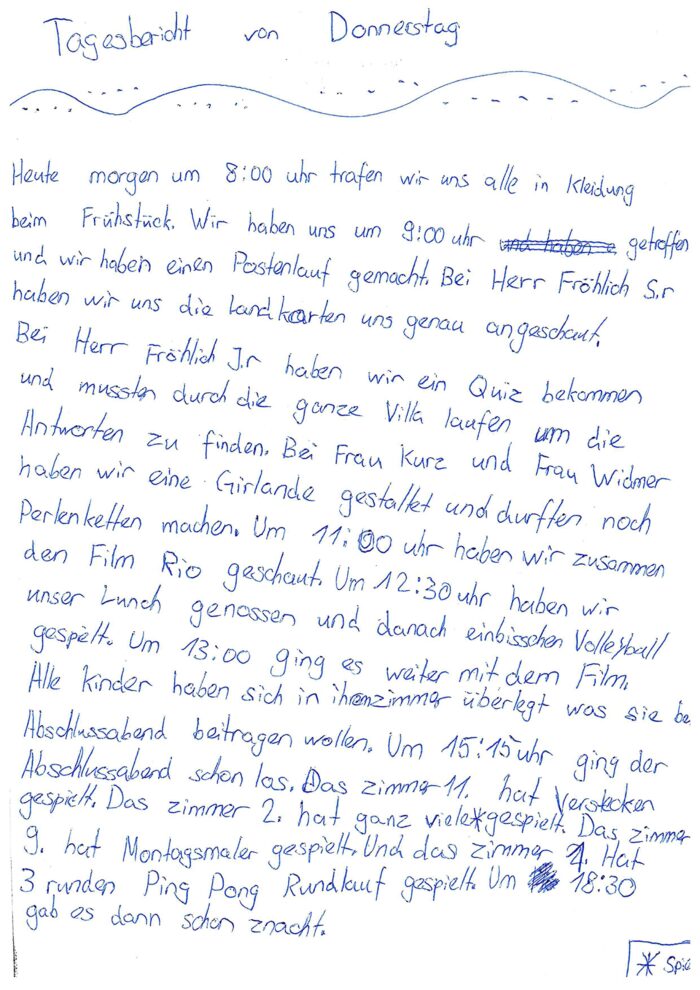 Tagesbericht von Donnerstag
Heute morgen um 8:00 uhr trafen wir uns alle in Kleidung
beim Frühstück. Wir haben uns um 9:00 uhr getroffen
und wir haben einen Postenlauf gemacht. Bei Herr Fröhlich S.r
haben wir uns die Landkarten uns genau angeschaut.
Bei Herr Fröhlich J.r haben wir ein Quiz bekommen
und mussten durch die ganze Villa laufen um die
Antworten zu finden. Bei Frau Kurz und Frau Widmer
haben wir eine Girlande gestaltet und durften noch
Perlenketten machen. Um 11:00 uhr haben wir zusammen
den Film Rio geschaut. Um 12:30 uhr haben wir
unser Lunch genossen und danach einbisschen Volleyball
gespielt. Um 13:00 ging es weiter mit dem Film.
Alle Kinder haben sich in ihrenzimmer überlegt was sie be
Abschlussabend beitragen wollen. Um 15:15 uhr ging der
Abschlussabend schon los. Das zimmer 11. hat Verstecken
gespielt. Das zimmer 2. hat ganz viele*gespielt. Das zimmer
9. hat Montagsmaler gespielt. Und das zimmer 1. Hat
3 runden Ping Pong Rundlauf gespielt. Um 18:30
gab es dann schon znacht.
* Spie